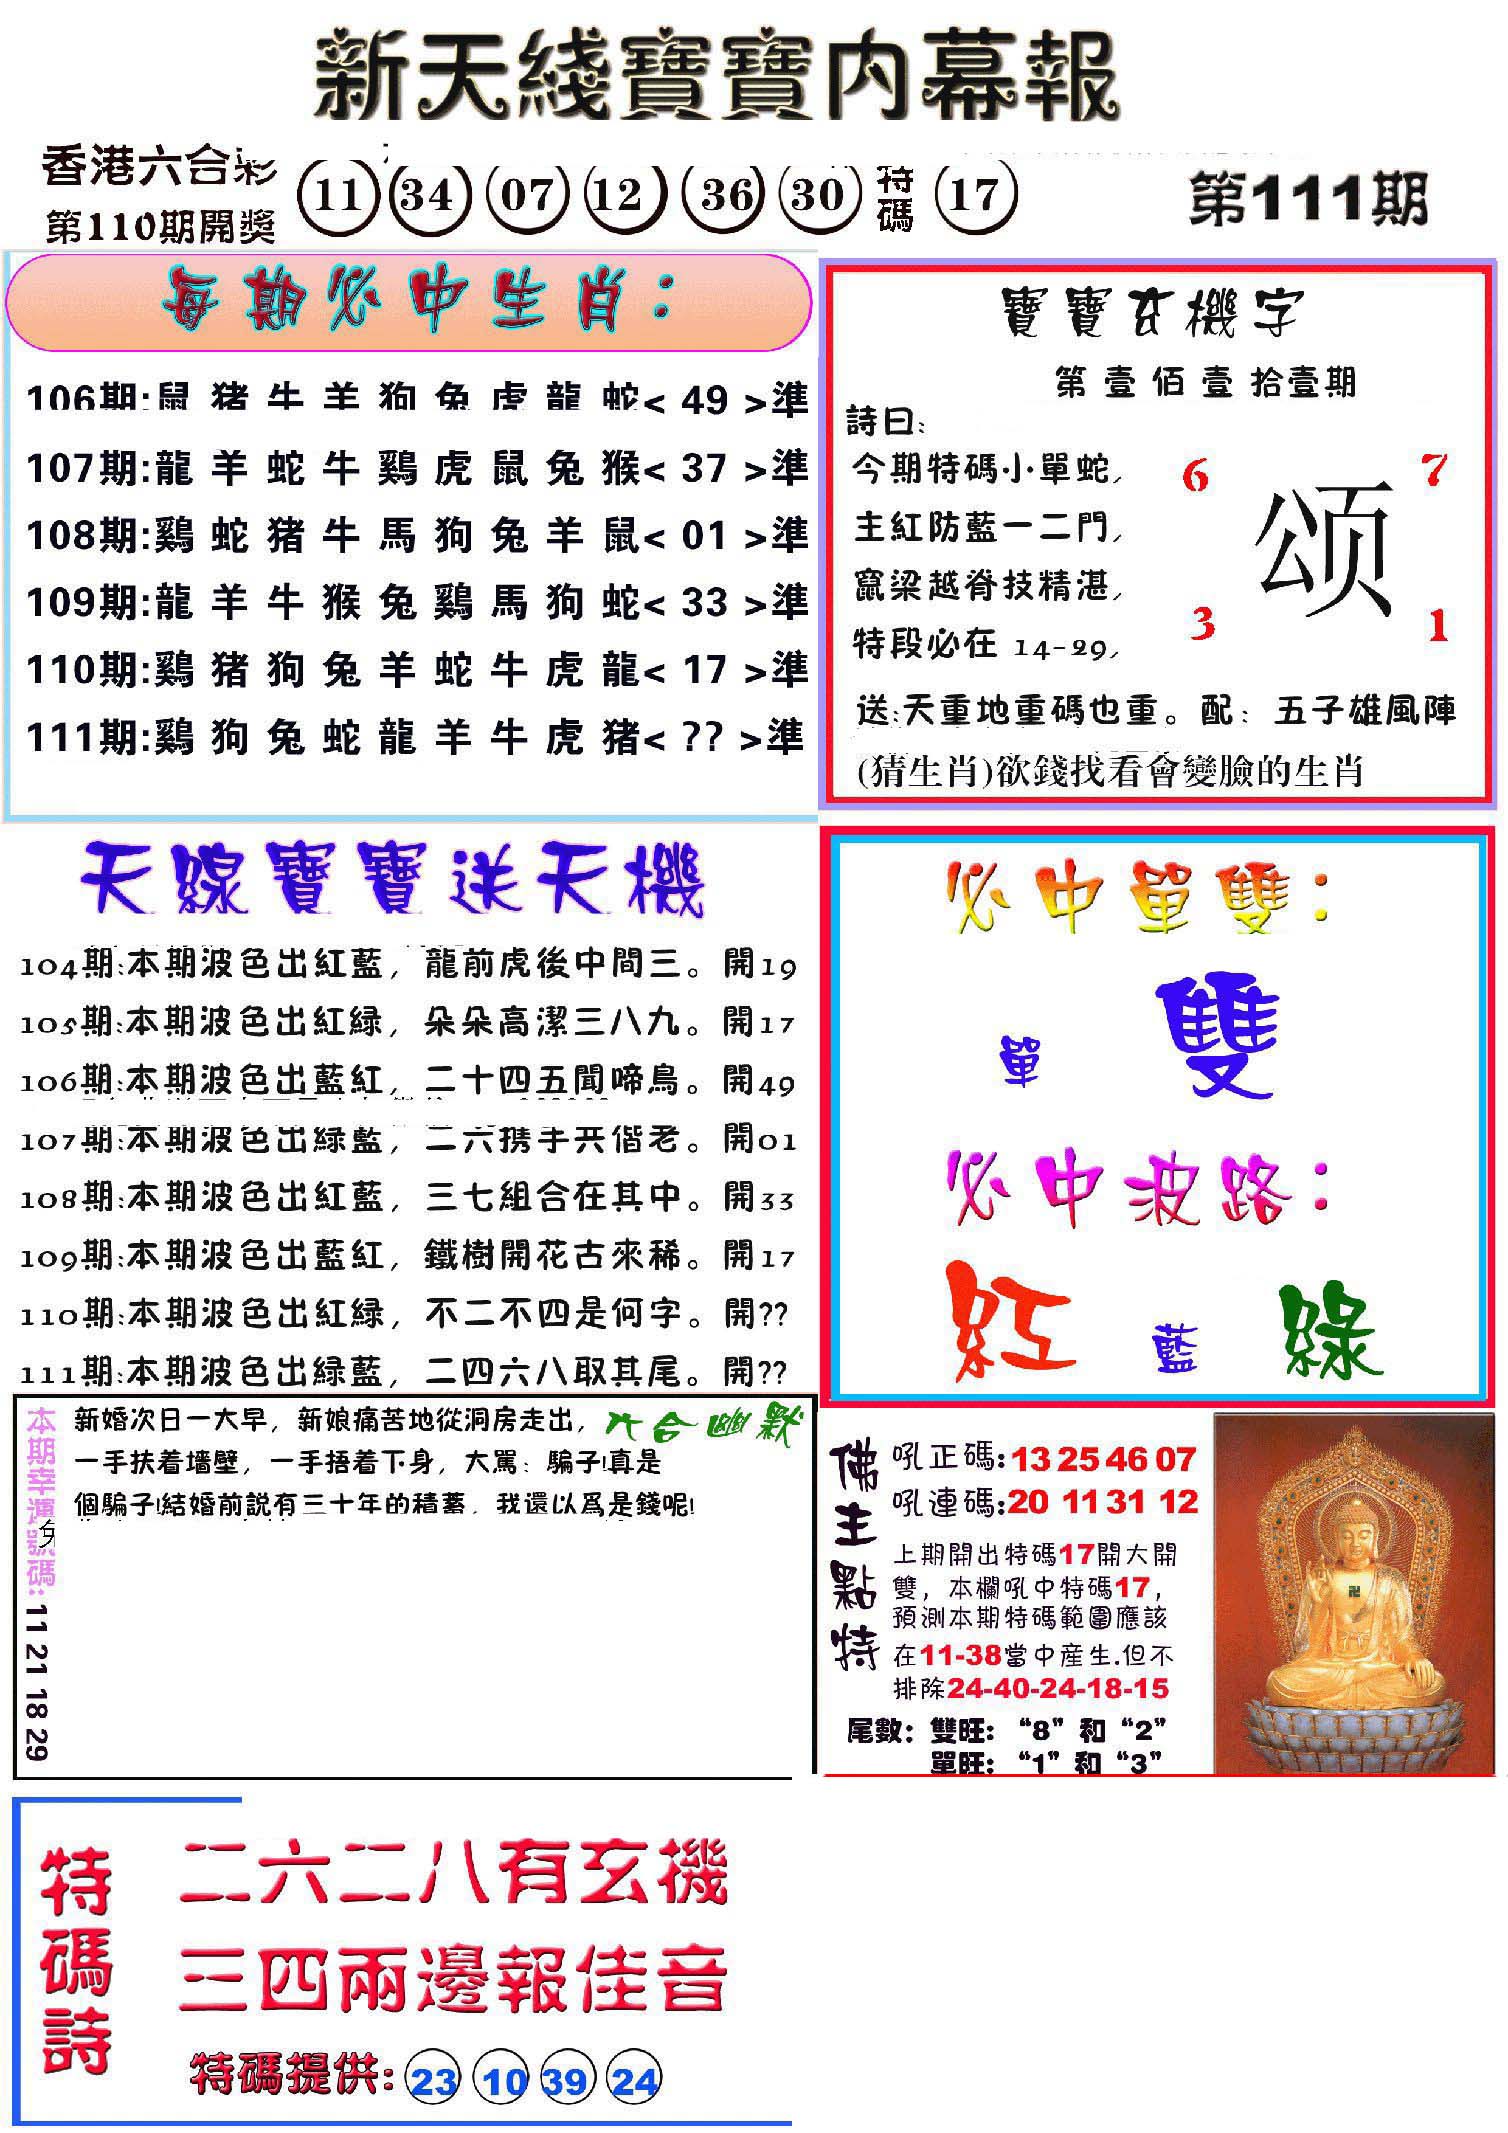 新天綫寶寶内幕報
香港六合彩
第110期開獎
11 34 07 12 36 30 特碼 17
第111期
每期必中生肖：
106期:鼠 猪 牛 羊 狗 兔 虎 龍 蛇< 49 >準
107期:龍 羊 蛇 牛 鷄 虎 鼠 兔 猴< 37 >準
108期:鷄 蛇 猪 牛 馬 狗 兔 羊 鼠< 01 >準
109期:龍 羊 牛 猴 兔 鷄 馬 狗 蛇< 33 >準
110期:鷄 猪 狗 兔 羊 蛇 牛 虎 龍< 17 >準
111期:鷄 狗 兔 蛇 龍 羊 牛 虎 猪< ?? >準
寶寶玄機字
第壹佰壹拾壹期
詩曰:
今期特碼小單蛇,
主紅防藍一二門,
竄梁越脊技精湛,
特段必在 14-29,
6 7
颂
3 1
送:天重地重碼也重。配: 五子雄風陣
(猜生肖)欲錢找看會變臉的生肖
天線寶寶送天機
104期:本期波色出紅藍, 龍前虎後中間三。開19
105期:本期波色出紅緑, 朵朵高潔三八九。開17
106期:本期波色出藍紅, 二十四五聞啼鳥。開49
107期:本期波色出緑藍, 二六携手共偕老。開01
108期:本期波色出紅藍, 三七組合在其中。開33
109期:本期波色出藍紅, 鐵樹開花古來稀。開17
110期:本期波色出紅緑, 不二不四是何字。開??
111期:本期波色出緑藍, 二四六八取其尾。開??
必中單雙：
單 雙
必中波路：
紅 藍 綠
本期幸運號碼: 11 21 18 29
六合幽默
新婚次日一大早, 新娘痛苦地從洞房走出,
一手扶着墻壁, 一手捂着下身, 大駡: 騙子!真是
個騙子!結婚前説有三十年的積蓄, 我還以爲是錢呢!
佛主點特
吼正碼:13 25 46 07
吼連碼:20 11 31 12
上期開出特碼17開大開
雙, 本欄吼中特碼17,
預測本期特碼範圍應該
在11-38當中産生.但不
排除24-40-24-18-15
尾數: 雙旺: “8”和“2”
單旺: “1”和“3”
特碼詩
二六二八有玄機
三四兩邊報佳音
特碼提供: 23 10 39 24